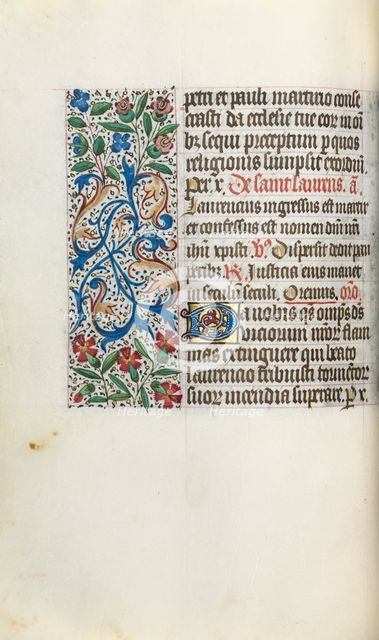 petri et pauli martirio conse
crasti da ecclesie tue eor in oı̄
bz sequi preceptum p quos
religionis sumpsit exordiū.
Per x. De saint laurens. ā.
Laurencius ingressus est martir
et confessus est nomen dnı̄ nrı̄
ihū xpisti. V̊. Dispersit dedit pau
peribz R. Justicia eius manet
in seculū seculi. Oremus. oro̅.
Da nobis qs̄ omps ds
viciorum nrōr flam
mas extinguere qui beato
laurencio tribuisti tormētor
suor incendia superare. P x.
Heritage
Heritage